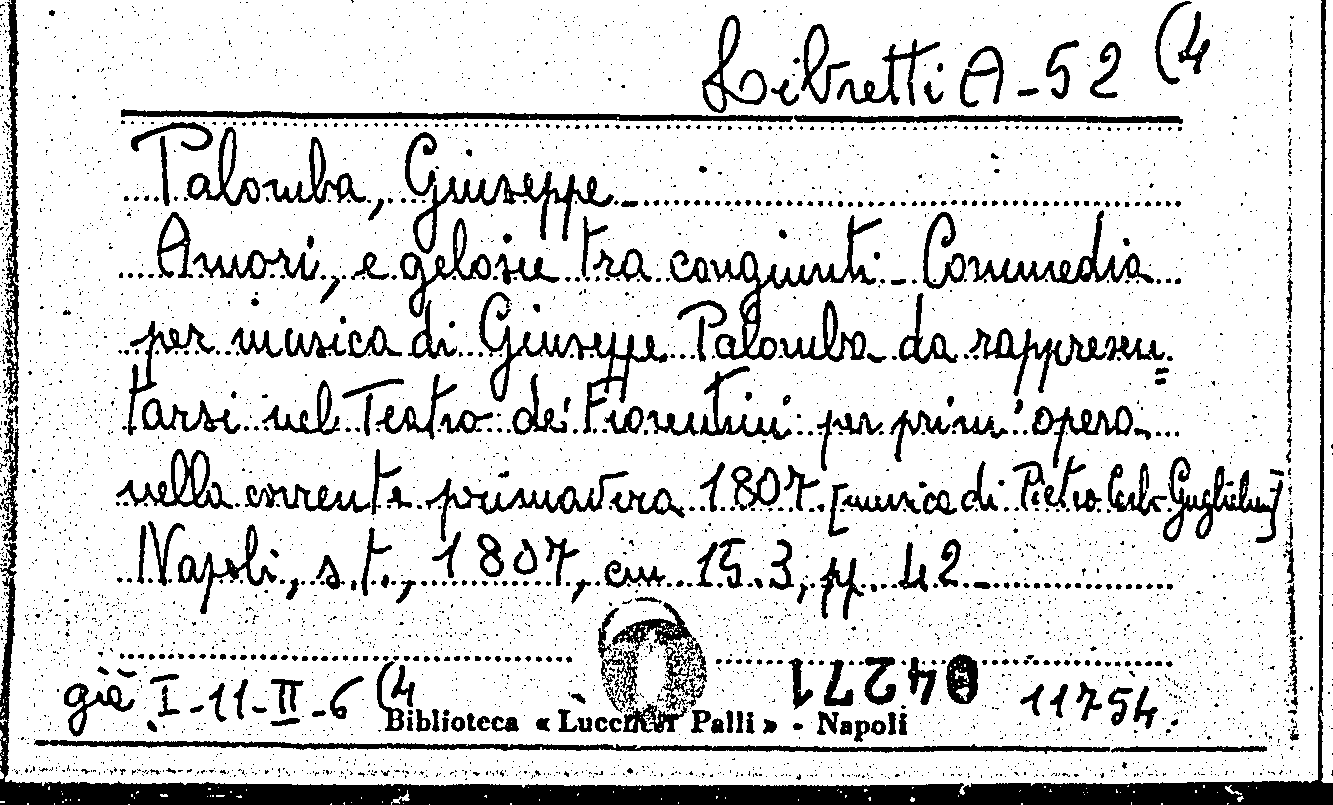 Libretti A-52 (4
Palomba, Giuseppe -
Amori, e gelosie tra congiunti - Commedia
per musica di Giuseppe Palomba da rappresen=
tarsi nel Teatro de' Fiorentini per prim'opera
nella corrente primavera 1807. [musica di Pietro Carlo Guglielmi]
Napoli, s.t., 1807, cm 15.3, pp. 42 -
già I-11-II-6 (4
04271
11754.
Biblioteca « Lucchesi Palli » - Napoli